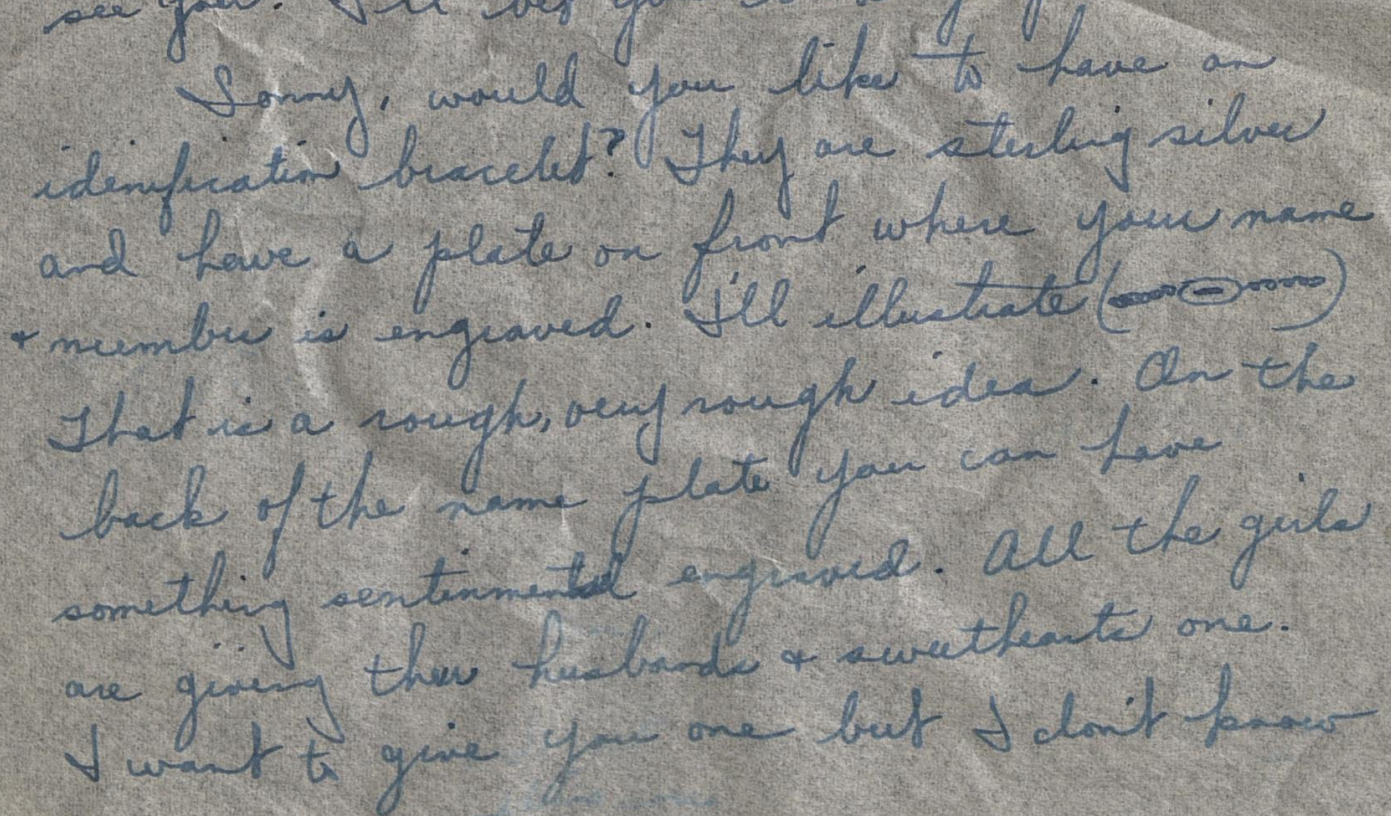 see you. I'll bet you
Sonny, would you like to have an
idenification bracelet? They are sterling silver
and have a plate on front where your name
& number is engraved. I'll illustrate ( )
That is a rough, very rough idea. On the
back of the name plate you can have
something sentinmental engraved. All the girls
are giving their husbands & sweethearts one.
I want to give you one but I don't know